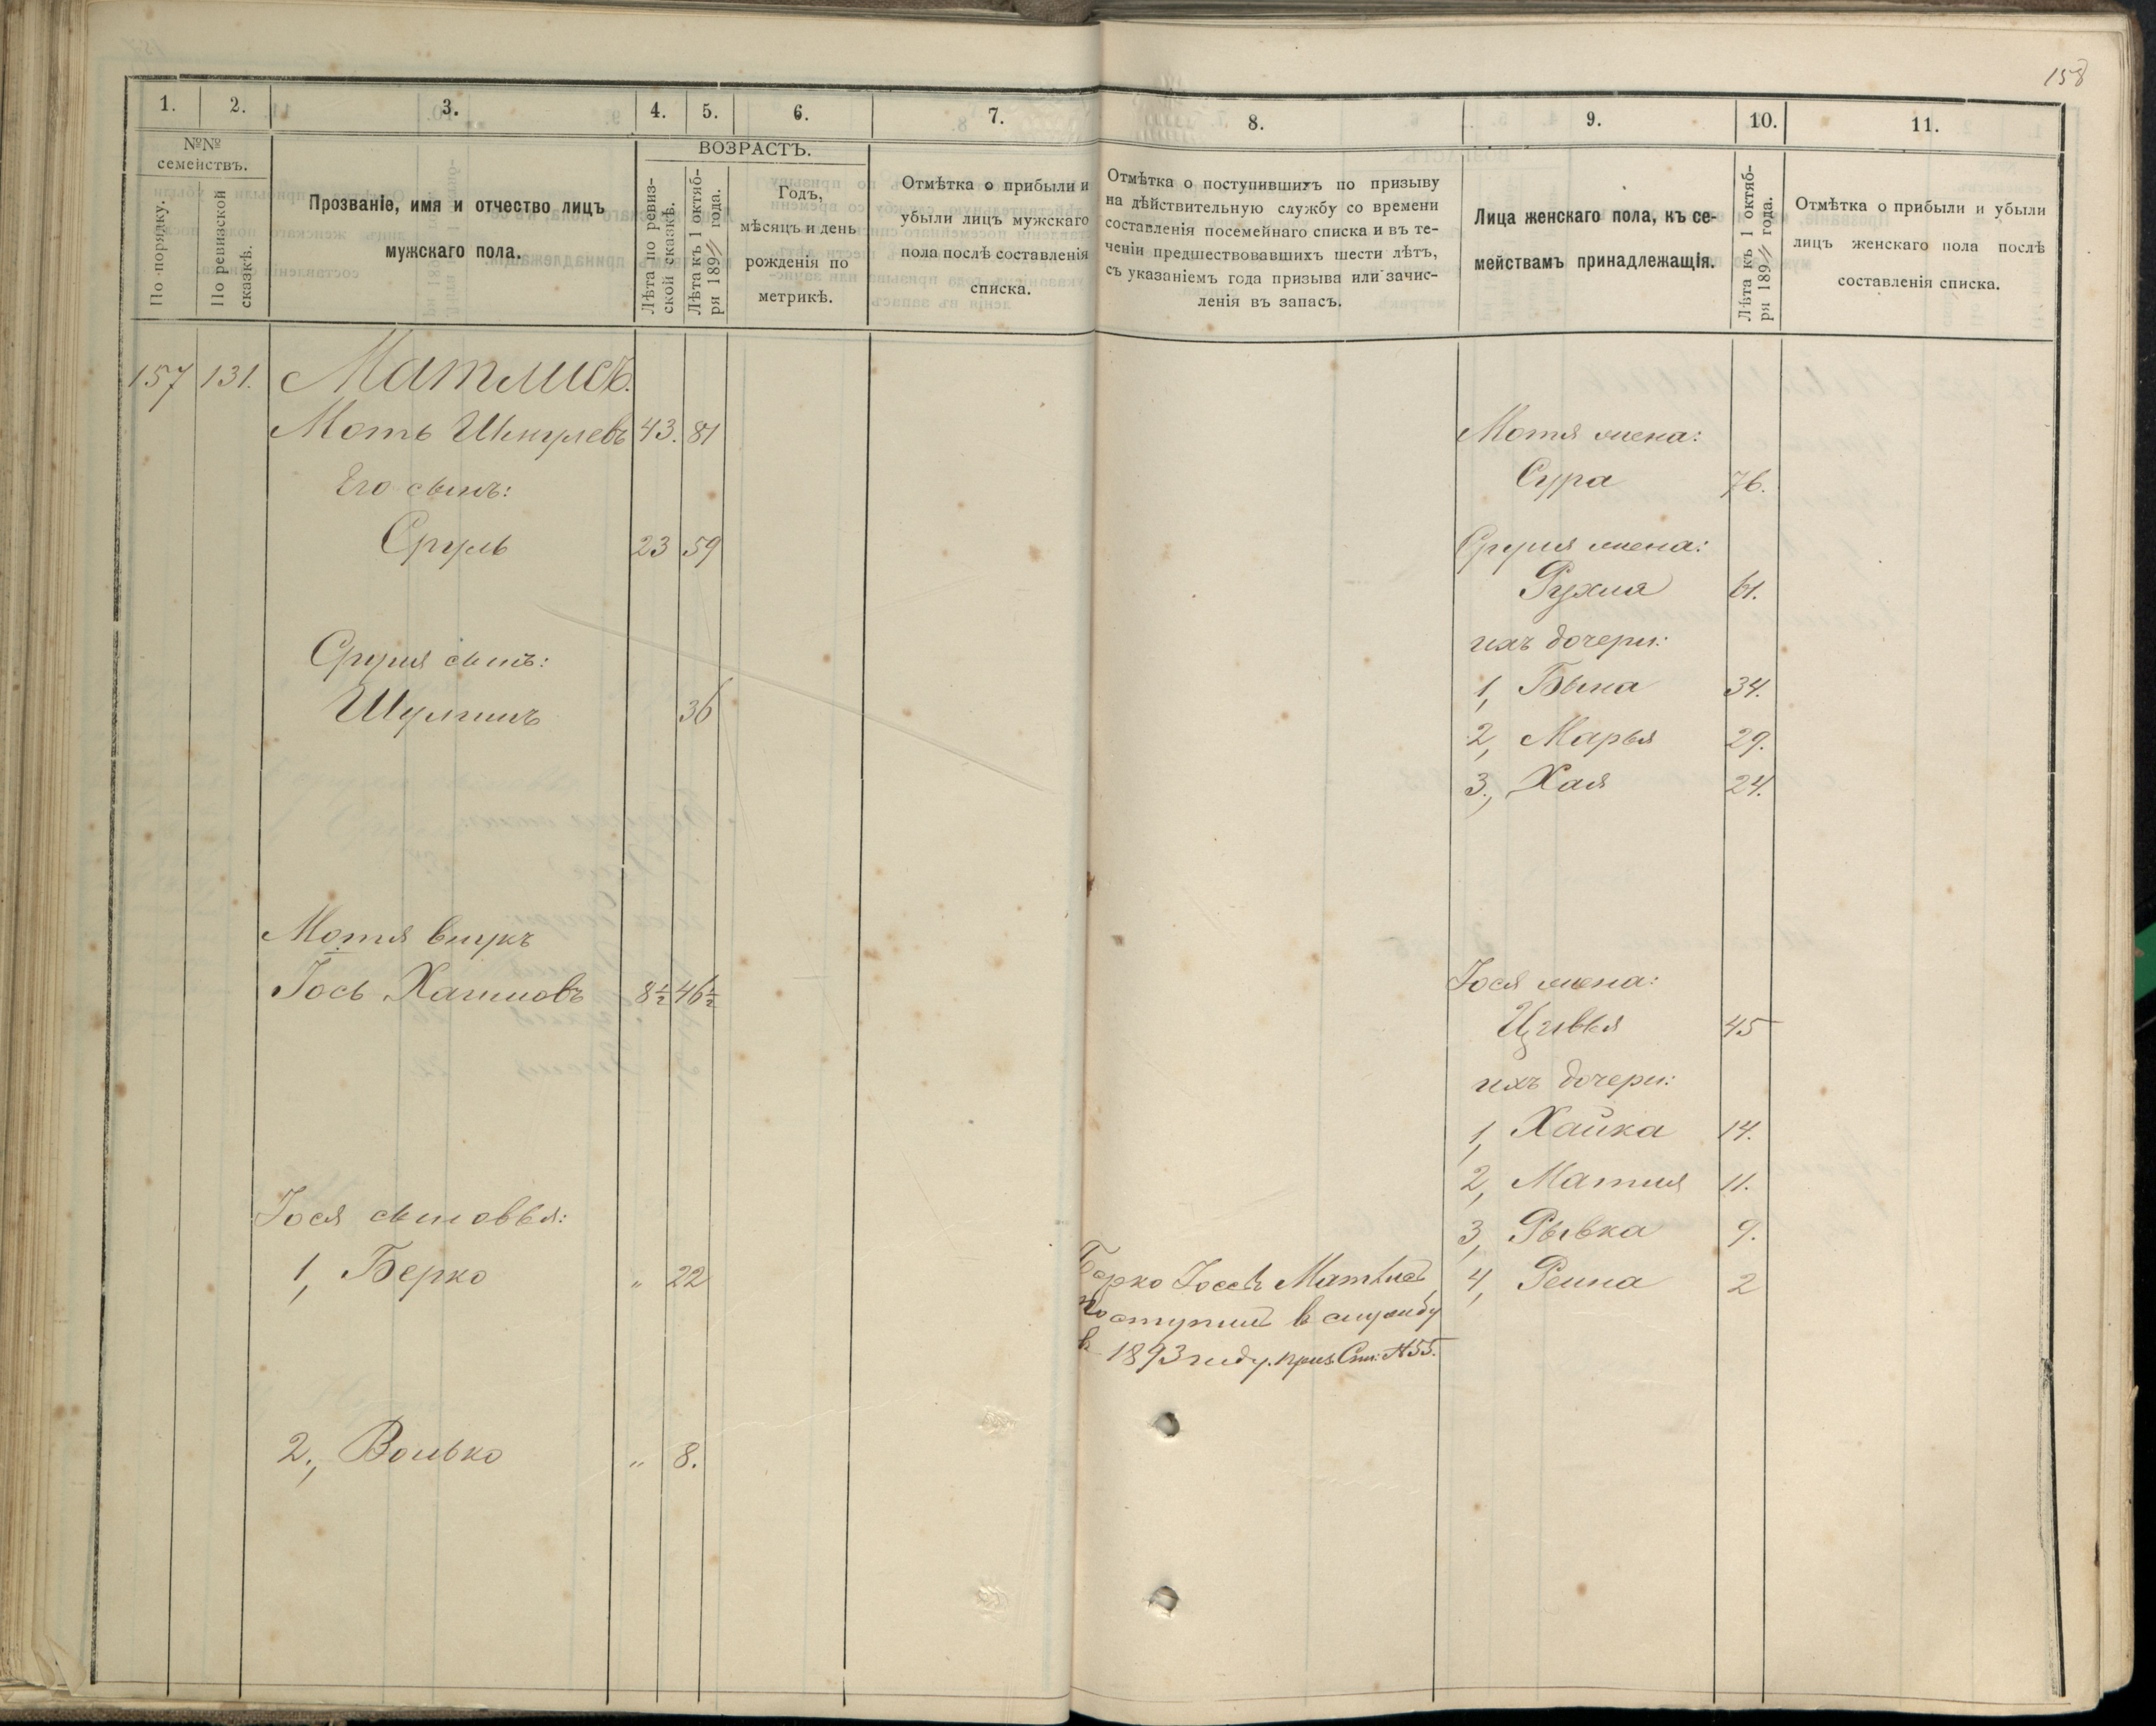 158
1.
2.
3.
4.
5.
6.
7.
8.
9.
10.
11.
№№ семействъ.
По порядку.
По ревизской сказкѣ.
Прозваніе, имя и отчество лицъ
мужскаго пола.
ВОЗРАСТЪ.
Лѣта по ревизской сказкѣ.
Лѣта къ 1 октября 189 года.
Годъ,
мѣсяцъ и день
рожденія по
метрикѣ.
Отмѣтка о прибыли и
убыли лицъ мужскаго
пола послѣ составленія
списка.
Отмѣтка о поступившихъ по призыву
на дѣйствительную службу со времени
составленія посемейнаго списка и въ те-
ченіи предшествовавшихъ шести лѣтъ,
съ указаніемъ года призыва или зачис-
ленія въ запасъ.
Лица женскаго пола, къ се-
мействамъ принадлежащія.
Лѣта къ 1 октяб-
ря 189 года.
Отмѣтка о прибыли и убыли
лицъ женскаго пола послѣ
составленія списка.
157 131. Матлисъ.
Моть 43. 81
Его сынъ:
Сруль 23 59
Сруля сынъ:
36
Мотя внукъ
Іось Хаимовъ 8½ 46½
Іося сыновья:
1, Берко " 22
2, Волько " 8.
Берко Матлисъ
поступилъ в службу
в 1893 году. приз. Сп: № 55.
Мотя жена:
Сура 76.
Сруля жена:
Рухля 61.
ихъ дочери:
1, Бына 34.
2, Марья 29.
3, Хая 24.
Іося жена:
Цивья 45
ихъ дочери:
1, Хайка 14.
2, Матля 11.
3, Рывка 9.
4, 2